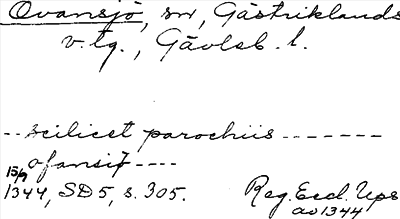 Ovansjö, sn, Gästriklands
v.tg., Gävleb. l.
-- scilicet parochiis -------
ofansiø ----
15/9
1344, SD5, s. 305. Reg. Eccl. Ups
av 1344